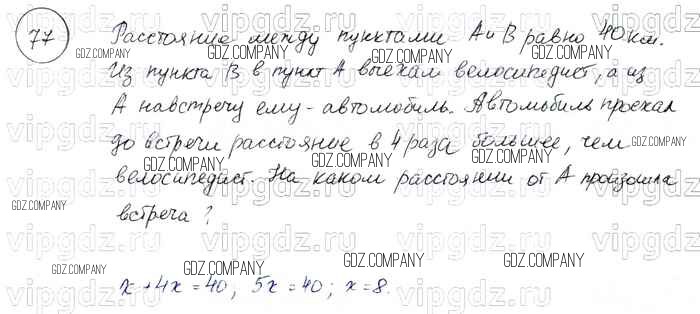 77 Расстояние между пунктами А и В равно 40 км.
Из пункта В в пункт А выехал велосипедист, а из
А навстречу ему - автомобиль. Автомобиль проехал
до встречи расстояние в 4 раза большее, чем
велосипедист. На каком расстоянии от А произошла
встреча?
x + 4x = 40, 5x = 40; x = 8.
vipgdz.ru
GDZ.COMPANY